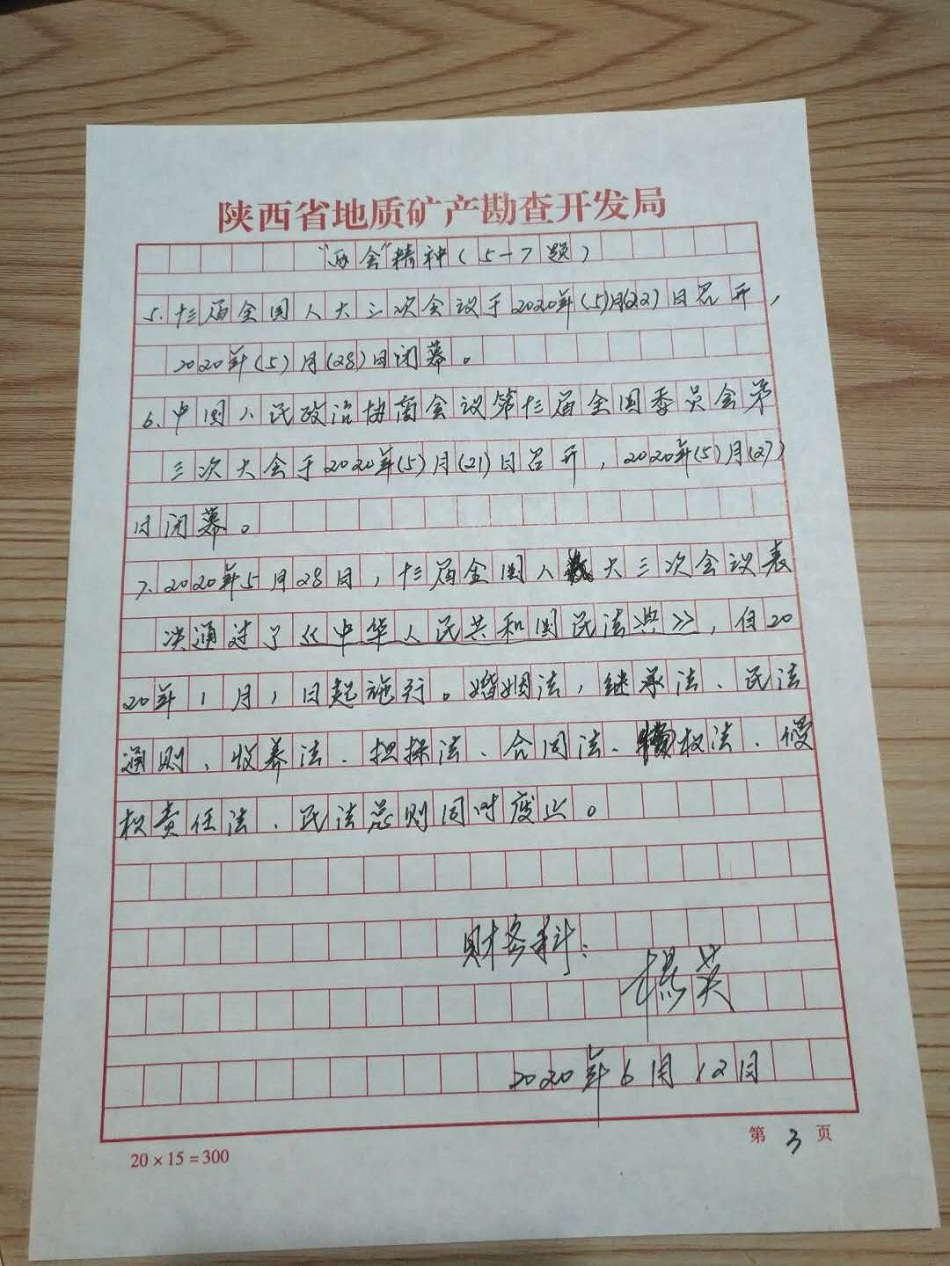 陕西省地质矿产勘查开发局
“两会”精神（5-7题）
5.十三届全国人大三次会议于2020年(5)月(22)日召开，
2020年(5)月(28)日闭幕。
6.中国人民政治协商会议第十三届全国委员会第
三次大会于2020年(5)月(21)日召开，2020年(5)月(27)
日闭幕。
7.2020年5月28日，十三届全国人大三次会议表
决通过了《中华人民共和国民法典》，自20
20年1月1日起施行。婚姻法，继承法、民法
通则、收养法、担保法、合同法、权法、侵
权责任法、民法总则同时废止。
财务科：
杨英
2020年6月12日
第3页
20×15=300